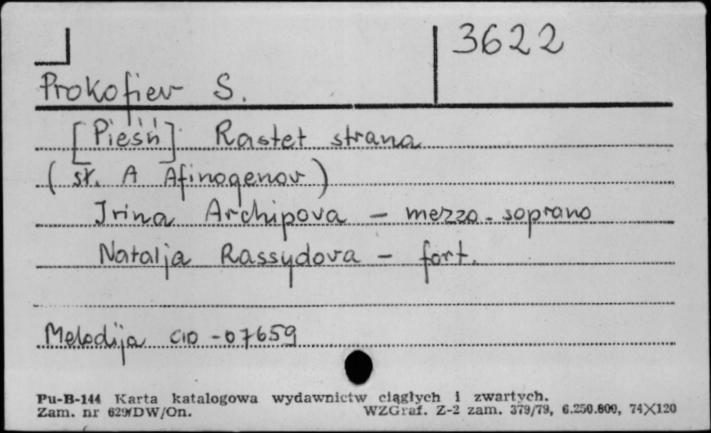 3622
Prokofiev S.
[Pieśń] Rastet strana
(sł. A Afinogenov)
Irina Archipova - mezzo-soprano
Natalja Rassudova - fort.
Melodija C10-07659
Pu-B-144 Karta katalogowa wydawnictw ciągłych i zwartych.
Zam. nr 629/DW/On. WZGraf. Z-2 zam. 379/79, 6.250.800, 74X120